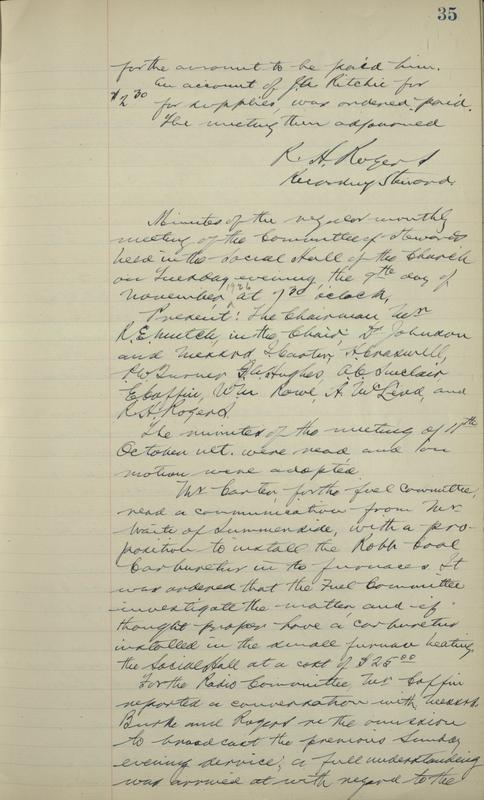 35
for the amount to be paid him.
An account of J.A. Ritchie for
$2.30 for supplies was ordered paid.
The meeting then adjourned
R. H. Rogers
Recording Steward.
Minutes of the regular monthly
meeting of the Committee of Stewards
held in the Social Hall of the Church
on Tuesday evening, the 9th day of
November, 1926 at 7.30 o'clock,
Present: The Chairman Mr
R.E. Mutch, in the Chair, Dr Johnson
and Messrs Carter, H. Craswell,
P.W. Turner, Hughes, Sinclair,
E. Saffin, Wm Rowe, A. McLeod, and
R.H. Rogers
The minutes of the meeting of 11th
October ult. were read and on
motion were adopted
Mr Carter, for the fuel committee,
read a communication from Mr.
Waite of Summerside, with a pro-
position to install the Robb Coal
Carburetter in the furnaces. It
was ordered that the Fuel Committee
investigate the matter and if
thought proper have a carburetter
installed in the small furnace heating
the Social Hall at a cost of $25.00
For the Radio Committee, Mr Saffin
reported a conversation with Messrs
Burke and Rogers re the omission
to broadcast the previous Sunday
evening service; a full understanding
was arrived at with regard to the